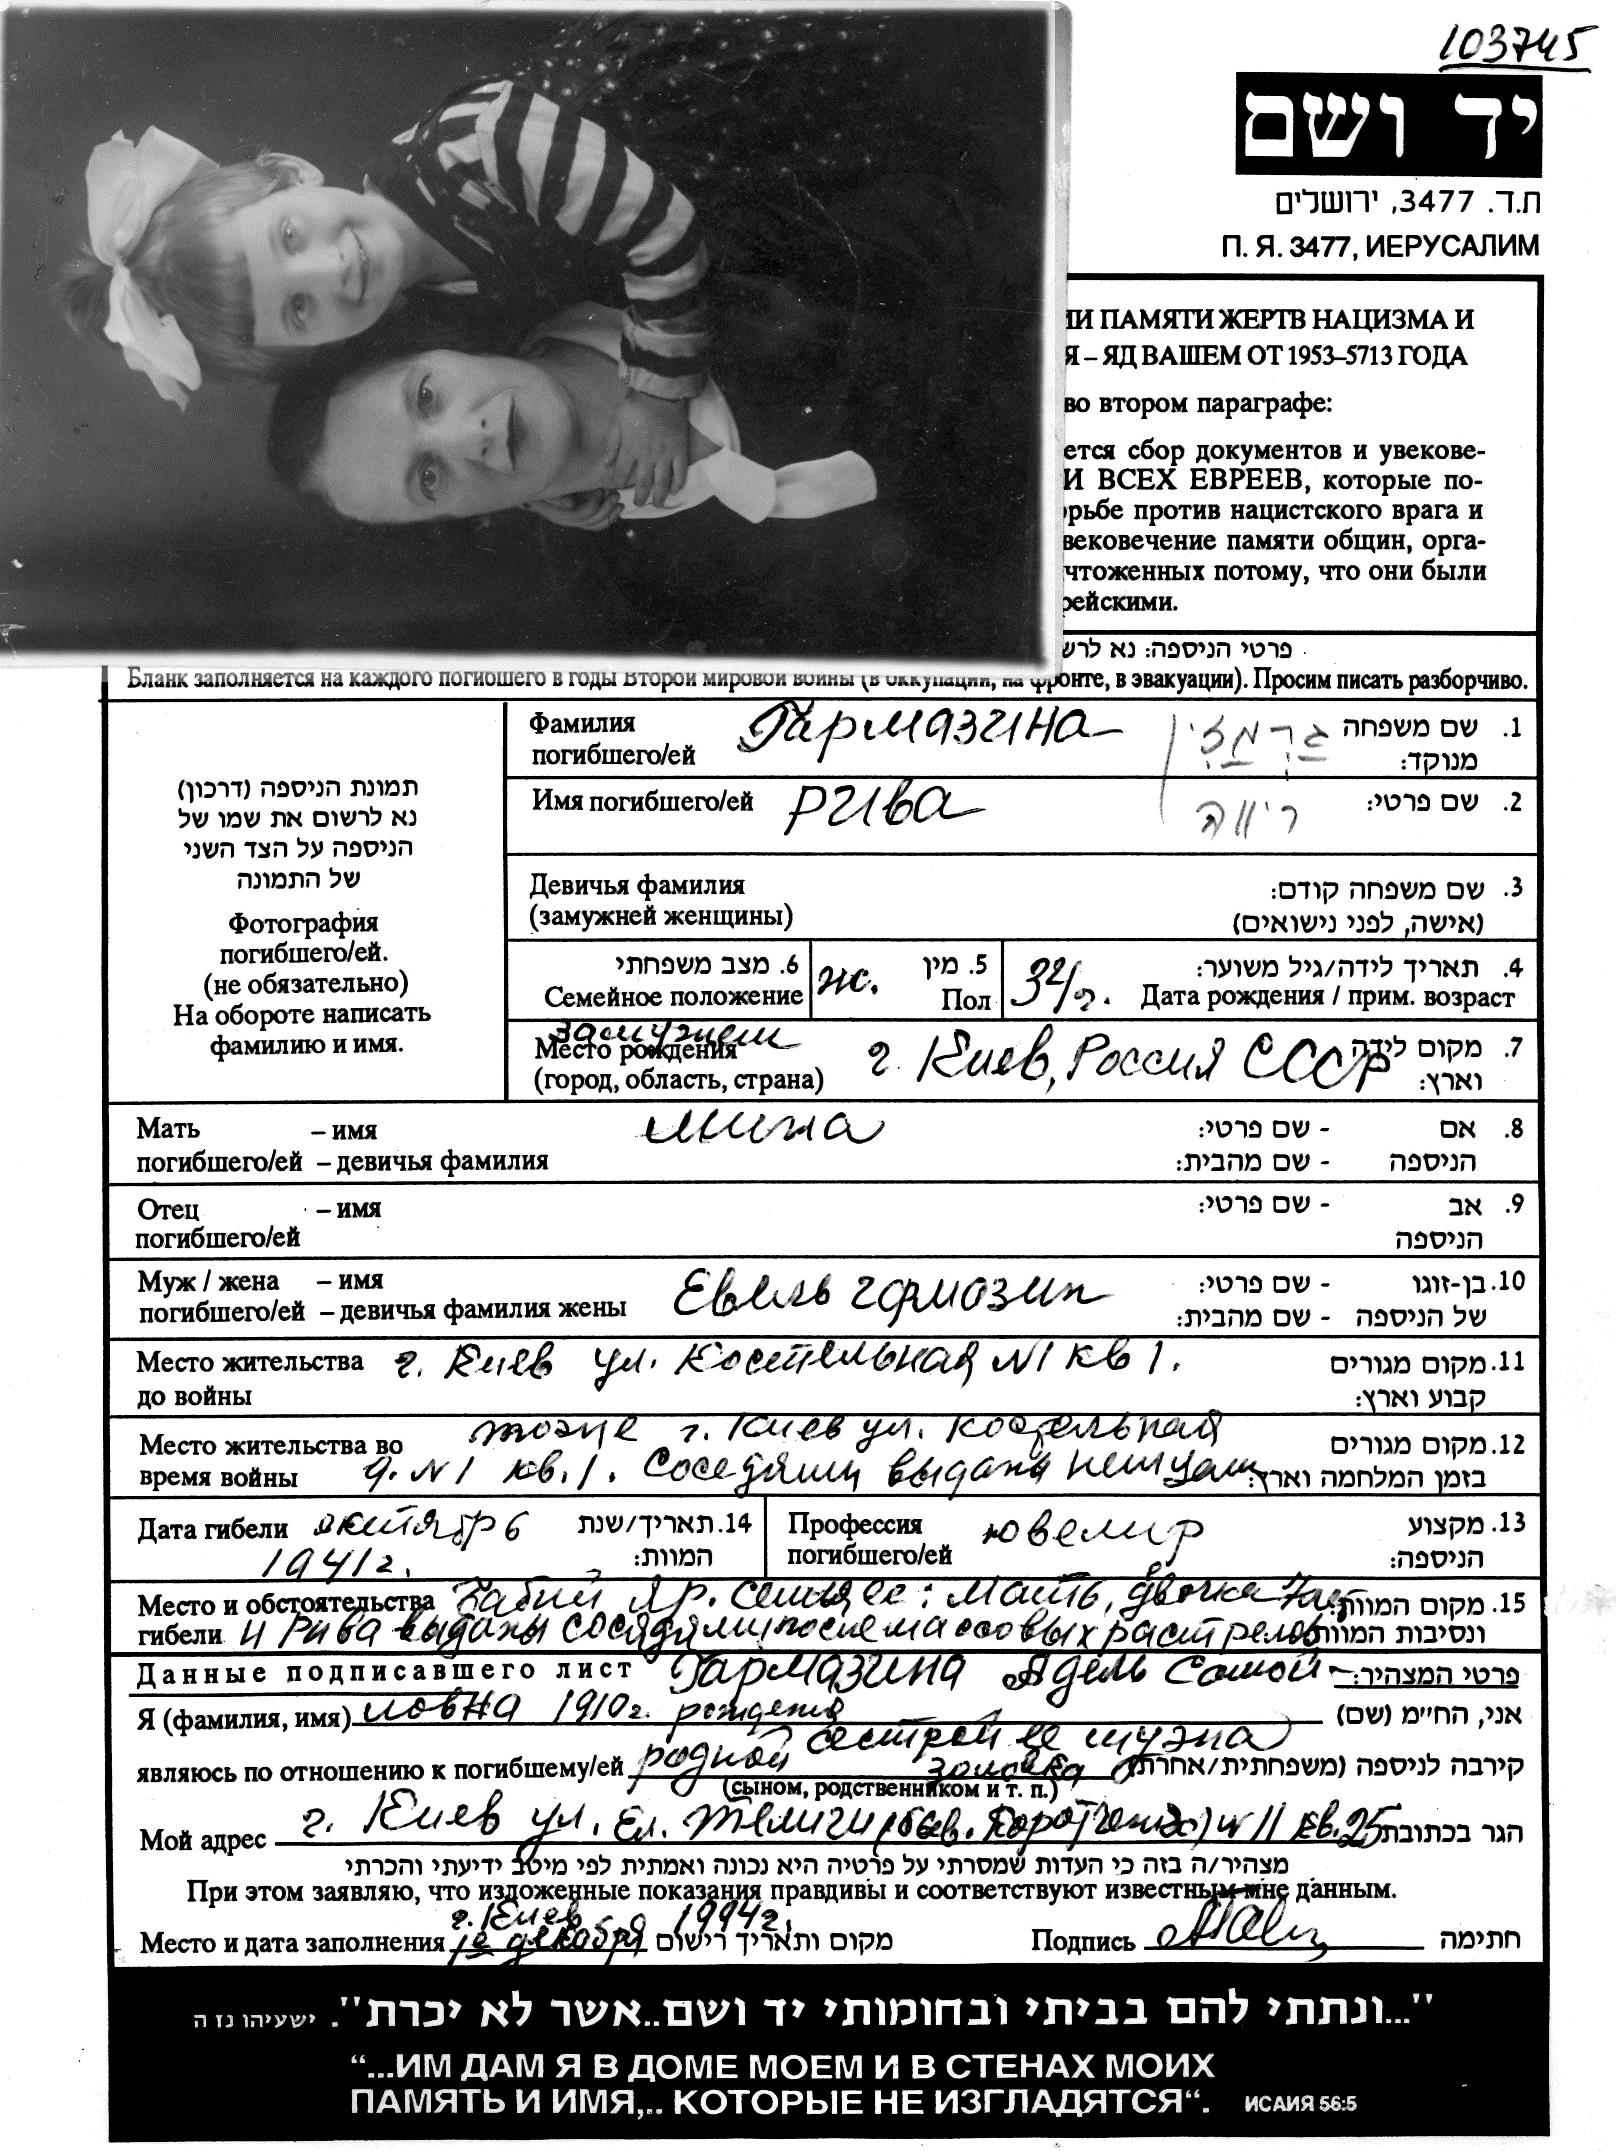 103745
יד ושם
ת.ד. 3477, ירושלים
П. Я. 3477, ИЕРУСАЛИМ
ИИ ПАМЯТИ ЖЕРТВ НАЦИЗМА И
Я – ЯД ВАШЕМ ОТ 1953–5713 ГОДА
во втором параграфе:
ется сбор документов и увекове-
И ВСЕХ ЕВРЕЕВ, которые по-
орьбе против нацистского врага и
вековечение памяти общин, орга-
чтоженных потому, что они были
рейскими.
פרטי הניספה: נא לרש
Бланк заполняется на каждого погибшего в годы Второй мировой войны (в оккупации, на фронте, в эвакуации). Просим писать разборчиво.
תמונת הניספה (דרכון)
נא לרשום את שמו של
הניספה על הצד השני
של התמונה
Фотография
погибшего/ей.
(не обязательно)
На обороте написать
фамилию и имя.
Фамилия Гармазина גרמזין שם משפחה .1
погибшего/ей מנוקד:
Имя погибшего/ей Рива ריווה שם פרטי: .2
Девичья фамилия שם משפחה קודם: .3
(замужней женщины) (אישה, לפני נישואים)
6. מצב משפחתי ж. 5. מין 32 г. תאריך לידה/גיל משוער: .4
Семейное положение Пол Дата рождения / прим. возраст
замужем
Место рождения г. Киев, Россия СССР מקום לידה .7
(город, область, страна) וארץ:
Мать – имя мина - שם פרטי: אם .8
погибшего/ей – девичья фамилия - שם מהבית: הניספה
Отец – имя - שם פרטי: אב .9
погибшего/ей הניספה
Муж / жена – имя Евель гармазин - שם פרטי: בן-זוגו .10
погибшего/ей – девичья фамилия жены - שם מהבית: של הניספה
Место жительства г. Киев ул. Костельная N1 кв 1. מקום מגורים .11
до войны קבוע וארץ:
тоже г. Киев ул. Костельная
Место жительства во מקום מגורים .12
время войны д. N1 кв. 1. Соседями выданы немцам בזמן המלחמה וארץ:
Дата гибели октябрь 14. תאריך/שנת Профессия ювелир מקצוע .13
1941г. המוות: погибшего/ей הניספה:
Место и обстоятельства Бабий Яр. Семья ее: Мать, двочка מקום המוות .15
гибели и Рива выданы соседями после массовых растрелов ונסיבות המוות
Данные подписавшего лист Гармазина Адель Самой- פרטי המצהיר:
Я (фамилия, имя) ловна 1910г. рождения אני, החי"מ (שם)
сестрой ее мужа
являюсь по отношению к погибшему/ей родной золовка קירבה לניספה (משפחתית/אחרת)
(сыном, родственником и т. п.)
Мой адрес г. Киев ул. Ел. Телиги (быв. Коротченко) N 11 кв. 25 הגר בכתובת
מצהיר/ה בזה כי העדות שמסרתי על פרטיה היא נכונה ואמתית לפי מיטב ידיעתי והכרתי
При этом заявляю, что изложенные показания правдивы и соответствуют известным мне данным.
г. Киев 1994г.
Место и дата заполнения декабря מקום ותאריך רישום Подпись חתימה
"...ונתתי להם בביתי ובחומותי יד ושם..אשר לא יכרת". ישעיהו נז ה
“...ИМ ДАМ Я В ДОМЕ МОЕМ И В СТЕНАХ МОИХ
ПАМЯТЬ И ИМЯ,.. КОТОРЫЕ НЕ ИЗГЛАДЯТСЯ“. ИСАИЯ 56:5